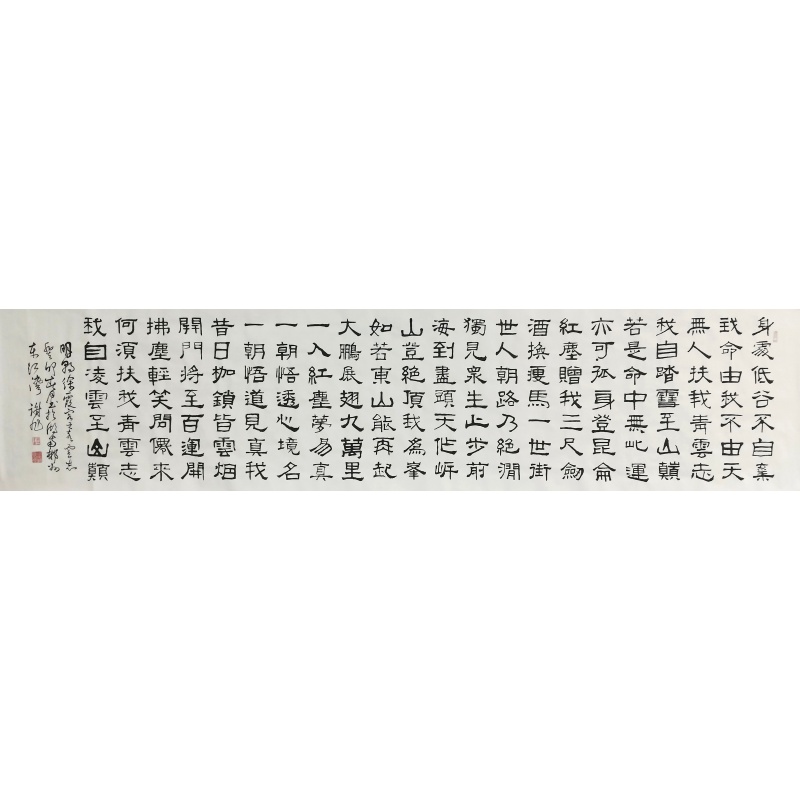 身處低谷不自棄
我命由我不由天
無人扶我青雲志
我自踏雪至山巔
若是命中無此運
亦可孤身登昆侖
紅塵贈我三尺劍
酒換瘦馬一世街
世人朝路乃絕澗
獨見眾生止步前
海到盡頭天作岸
山登絕頂我為峯
如若東山能再起
大鵬展翅九萬里
一入紅塵夢易真
一朝悟透心境名
一朝悟道見真我
昔日枷鎖皆雲烟
開門將至百運開
拂塵輕笑問儂來
何須扶我青雲志
我自凌雲至山巔
明朝徐霞客青雲志
癸卯書於湖南郴州
東江灣 謝旭